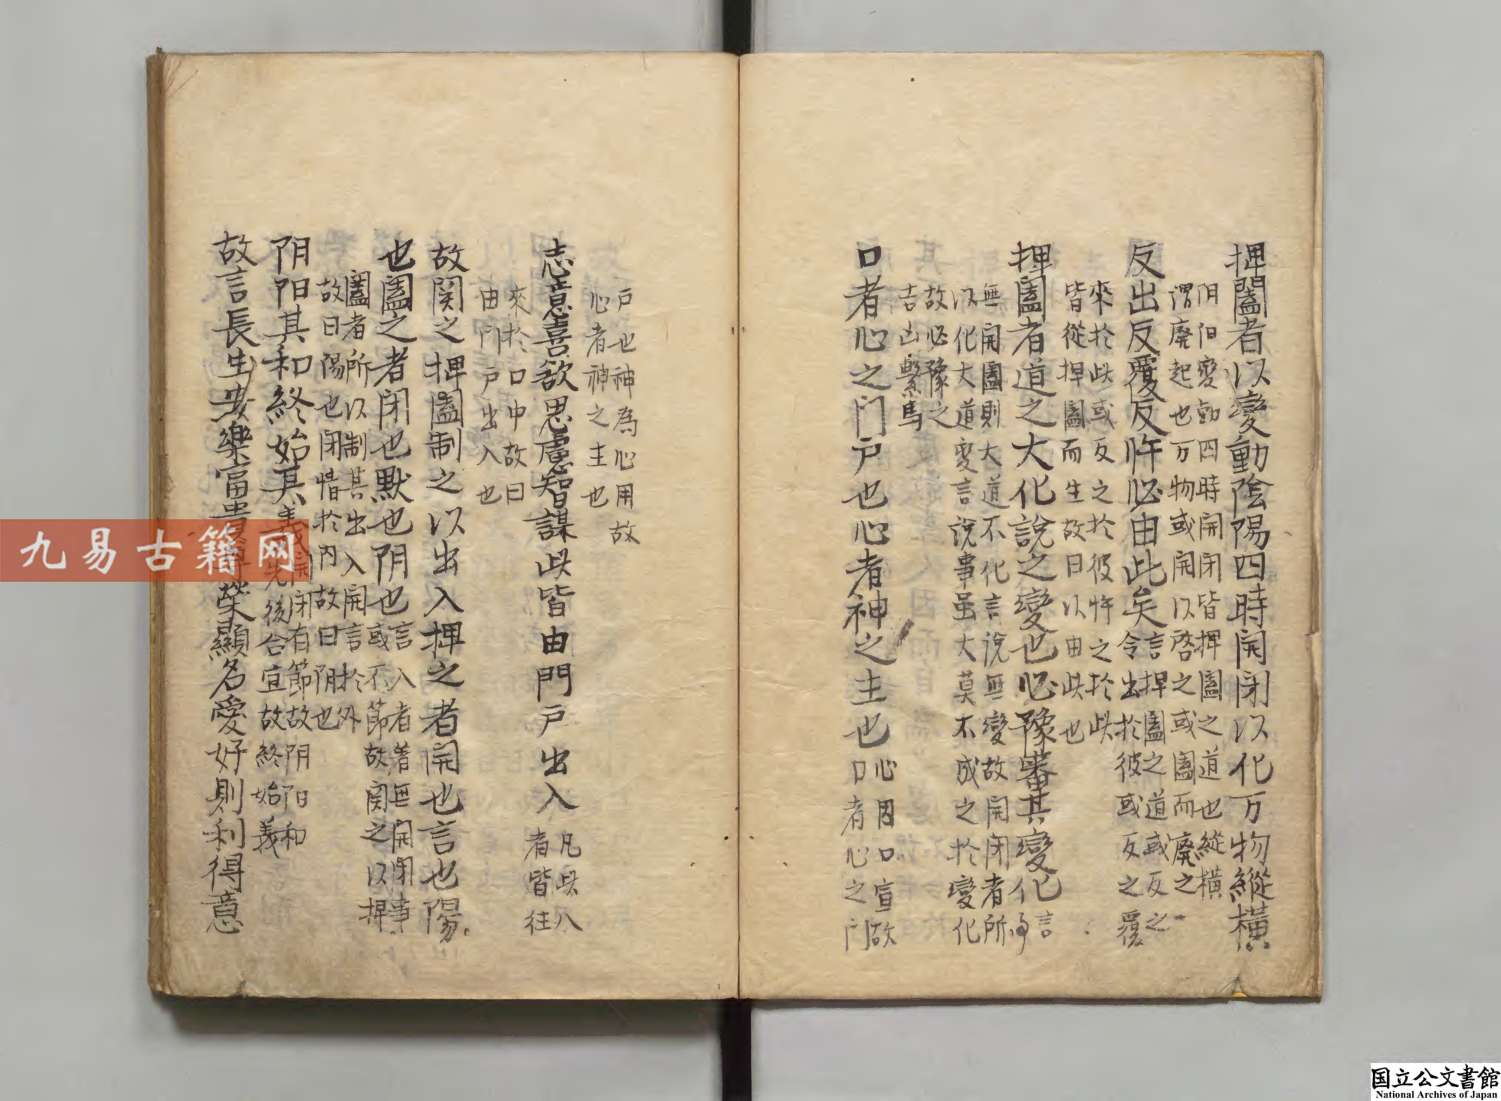 捭闔者以變動陰陽四時開閉以化万物縱橫
阴阳变動四時開閉皆捭闔之道也縱橫
謂廢起也万物或開以啓之或闔而廃之
反出反覆反忤必由此矣言捭闔之道或反之
令出於彼或反之覆
來於此或反之於彼忤之於此
皆從捭闔而生故曰以由此也
捭闔者道之大化說之變也必豫審其變化言
無開闔則大道不化言說無變故開閉者所
以化大道变言說事虽大莫不成之於變化
故必豫之
吉凶繫焉
口者心之门户也心者神之主也心因口宣故
口者心之门
户也神為心用故
心者神之主也
志意喜欲思慮智謀此皆由門戸出入凡此八
者皆往
來於口中故曰
由门户出入也
故関之捭闔制之以出入捭之者開也言也陽
也闔之者闭也默也阴也言入者若無開闭事
或不節故関之以捭
闔者所以制其出入開言於外
故曰陽也闭情於内故曰阴也
阴阳其和終始其義開闭有節故阴阳和
先後合宜故終始義
故言長生安樂富貴尊榮顯名愛好則利得意
九易古籍网
国立公文書館
National Archives of Japan